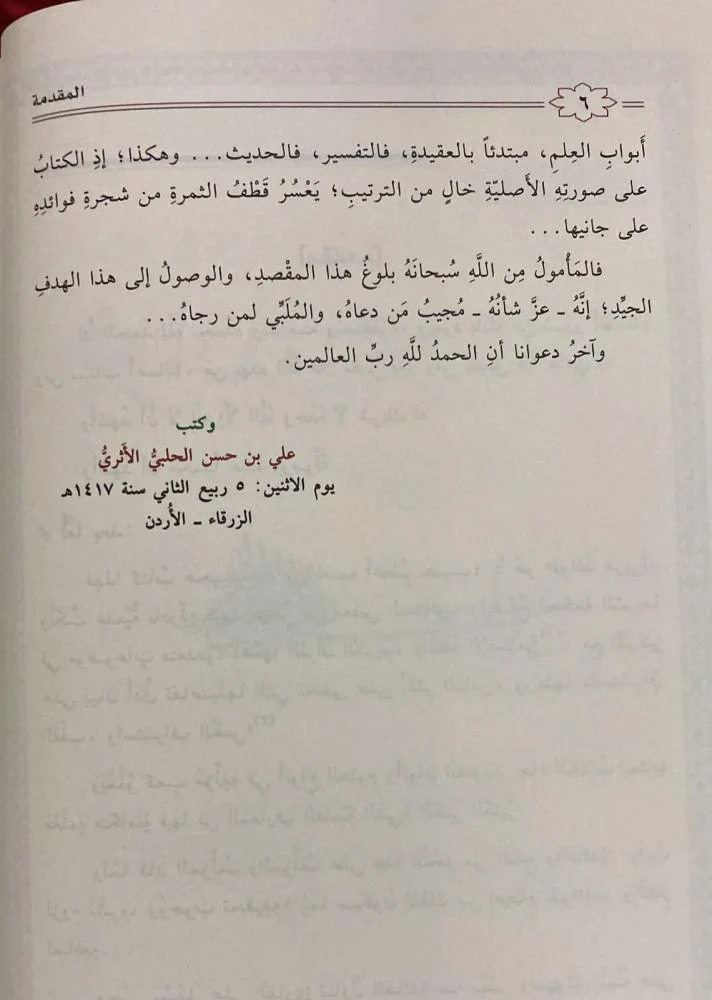 المقدمة
٦
أَبوابِ العِلمِ، مبتدئاً بالعقيدةِ، فالتفسيرِ، فالحديث... وهكذا؛ إذِ الكتابُ
على صورتِهِ الأَصليّةِ خالٍ من الترتيبِ؛ يَعْسُرُ قَطْفُ الثمرةِ من شجرةِ فوائدِهِ
على جانيها...
فالمَأْمولُ مِن اللَّهِ سُبحانَهُ بلوغُ هذا المقْصدِ، والوصولُ إلى هذا الهدفِ
الجيِّدِ؛ إنَّهُ ـ عزَّ شأنُهُ ـ مُجيبُ مَن دعاهُ، والمُلَبِّي لمن رجاهُ...
وآخرُ دعوانا أنِ الحمدُ للَّهِ ربِّ العالمين.
وكتب
علي بن حسن الحلبيُّ الأَثريُّ
يوم الاثنين: ٥ ربيع الثاني سنة ١٤١٧هـ
الزرقاء ـ الأُردن